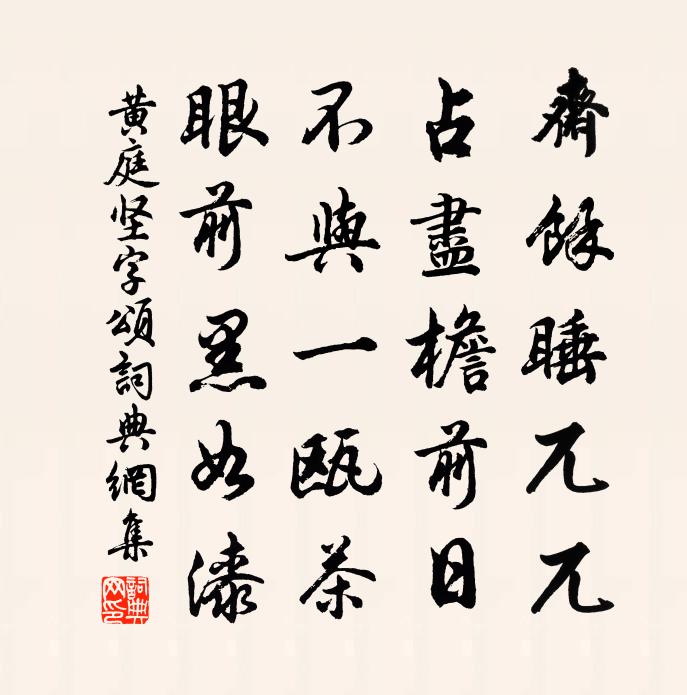 齋餘睡兀兀
占盡檐前日
不與一甌茶
眼前黑如漆
黄庭坚字頌詞典網集
詞典網印